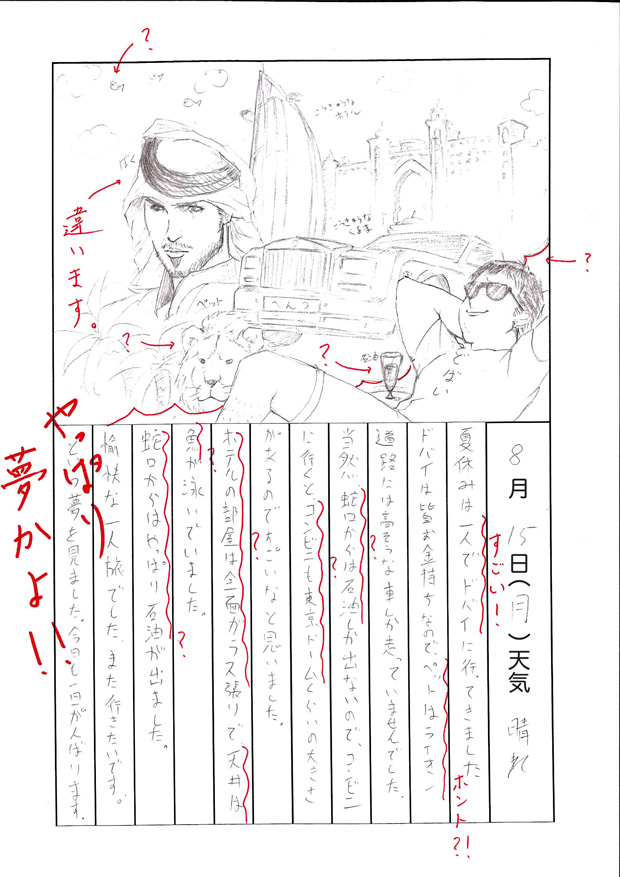 ?
ぼく
違います。
こうきゅうな
ホテル
こうきゅうな
くるま
?
ペット
?
べんつ
?
石油
どばい
8月15日(月)天気 晴れ
夏休みは一人でドバイに行ってきました
すごい!
ドバイは皆お金持ちなので、ペットはライオン
ホント?!
道路には高そうな車しか走っていませんでした。
当然、蛇口からは石油しか出ないので、コンビニ
?
に行くと、コンビニも東京ドームくらいの大きさ
?
があるのですごいなと思いました。
ホテルの部屋は全面ガラス張りで天井は
?
魚が泳いでいました。
蛇口からはやっぱり石油が出ました。
?
愉快な一人旅でした。また行きたいです。
という夢を見ました。今日も一日がんばります。
やっぱり
夢かよ!!